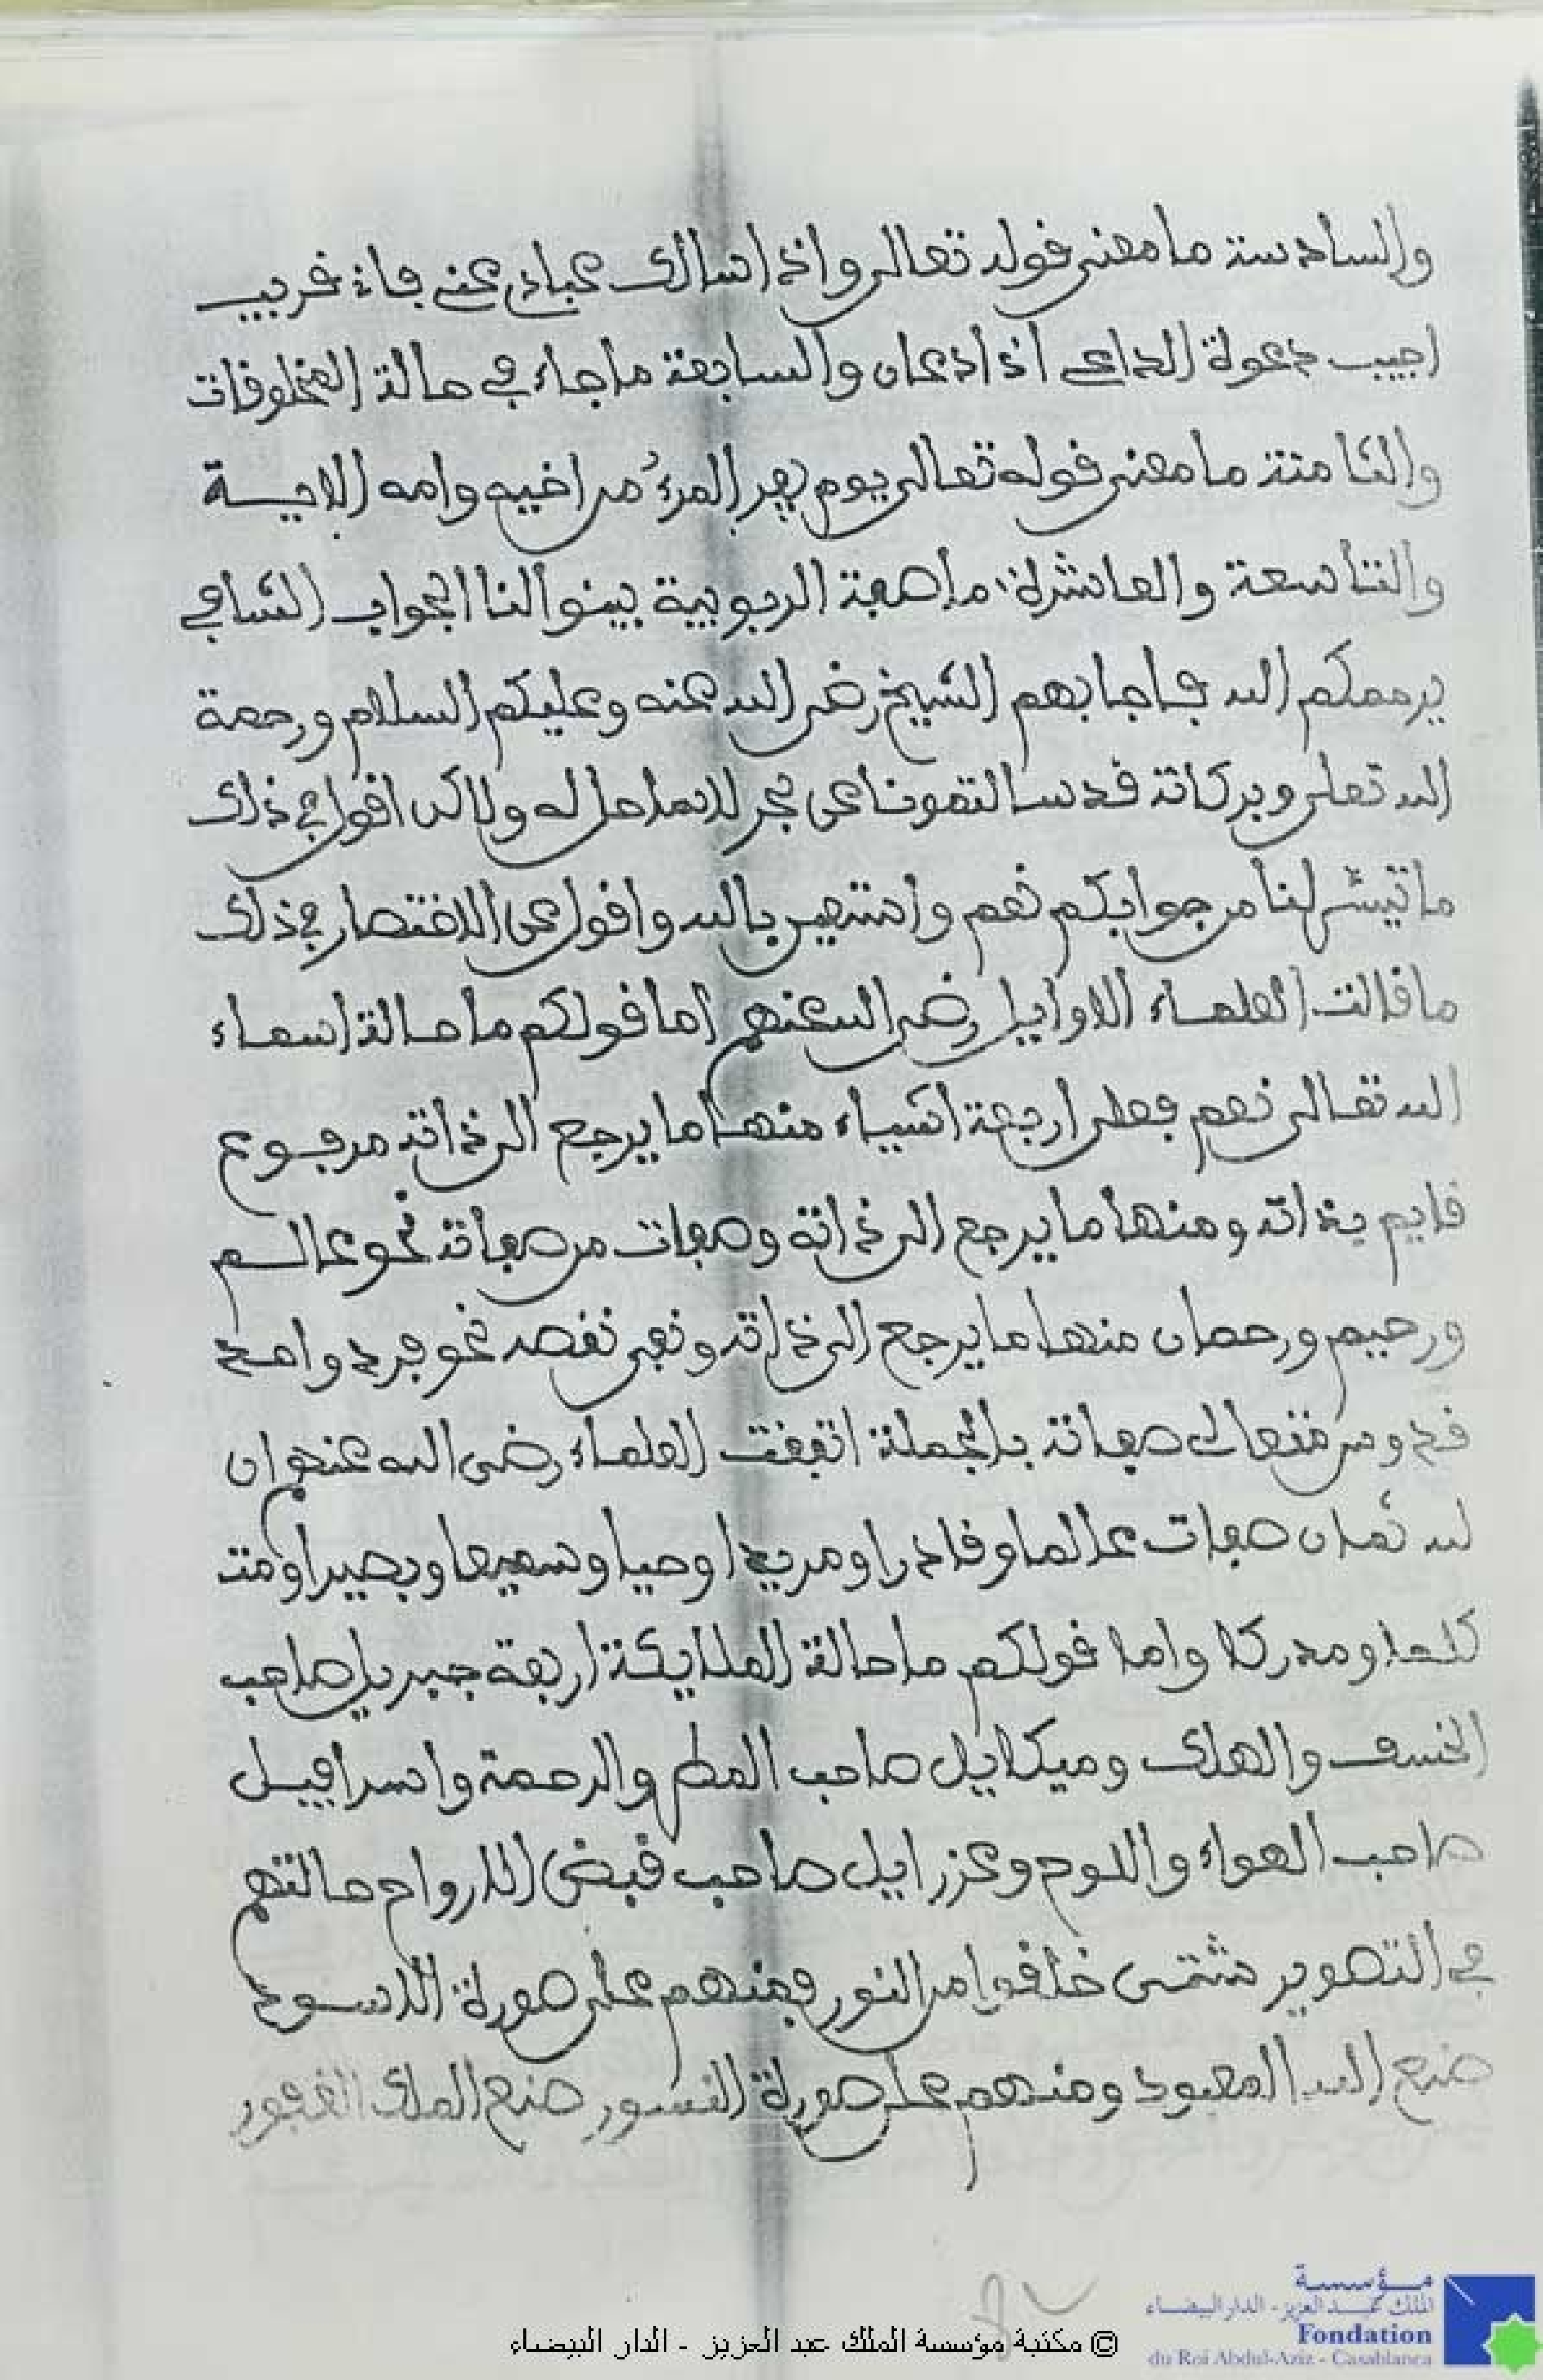 والسادسة ما معنى قوله تعالى واذا سالك عبادى عنى فانى قريب
اجيب دعوة الداعى اذا دعان والسابعة ما جاء في حالة المخلوقات
والثامنة ما معنى قوله تعالى يوم يفر المرء من اخيه وامه الايــة
والتاسعة والعاشرة ما صفة الربوبية بينوا لنا الجواب الشافي
يرحمكم الله فاجابهم الشيخ رضي الله عنه وعليكم السلام ورحمة
الله تعلى وبركاته قد سالتمونا عن بحر لا ساحل له ولاكن اقول في ذلك
ما تيسر لنا من جوابكم نعم واستعين بالله واقول على الاقتصار في ذلك
ما قالت العلماء الاوايل رضي الله عنهم اما قولكم ما حالة اسماء
الله تعالى نعم فعلى اربعة اشياء منها ما يرجع الى ذاته مرفوع
قايم بذاته ومنها ما يرجع الى ذاته وصفات من صفاته نحو عالــم
ورحيم ورحمان منها ما يرجع الى ذاته ونفي نقص نحو فرد واحد
قدوس فتعالى صفاته بالجملة اتفقت العلماء رضى الله عنهم ان
لله ثمان صفات عالما وقادرا ومريدا وحيا وسميعا وبصيرا ومت
كلما ومدركا واما قولكم ما حالة الملايكة اربعة جبريل صاحب
الخسف والهلك وميكاييل صاحب المطر والرحمة واسرافيــل
صاحب الهواء واللوح وعزرايل صاحب قبض الارواح حالتهم
في التصوير شتى خلقوا من النور فمنهم على صورة الاســود
صنع الله المعبود ومنهم على صورة النسور صنع الملك الغفور
© مكتبة مؤسسة الملك عبد العزيز - الدار البيضاء
مــؤسســة
الملك عبد العزيز - الدار البيضاء
Fondation
du Roi Abdul-Aziz - Casablanca